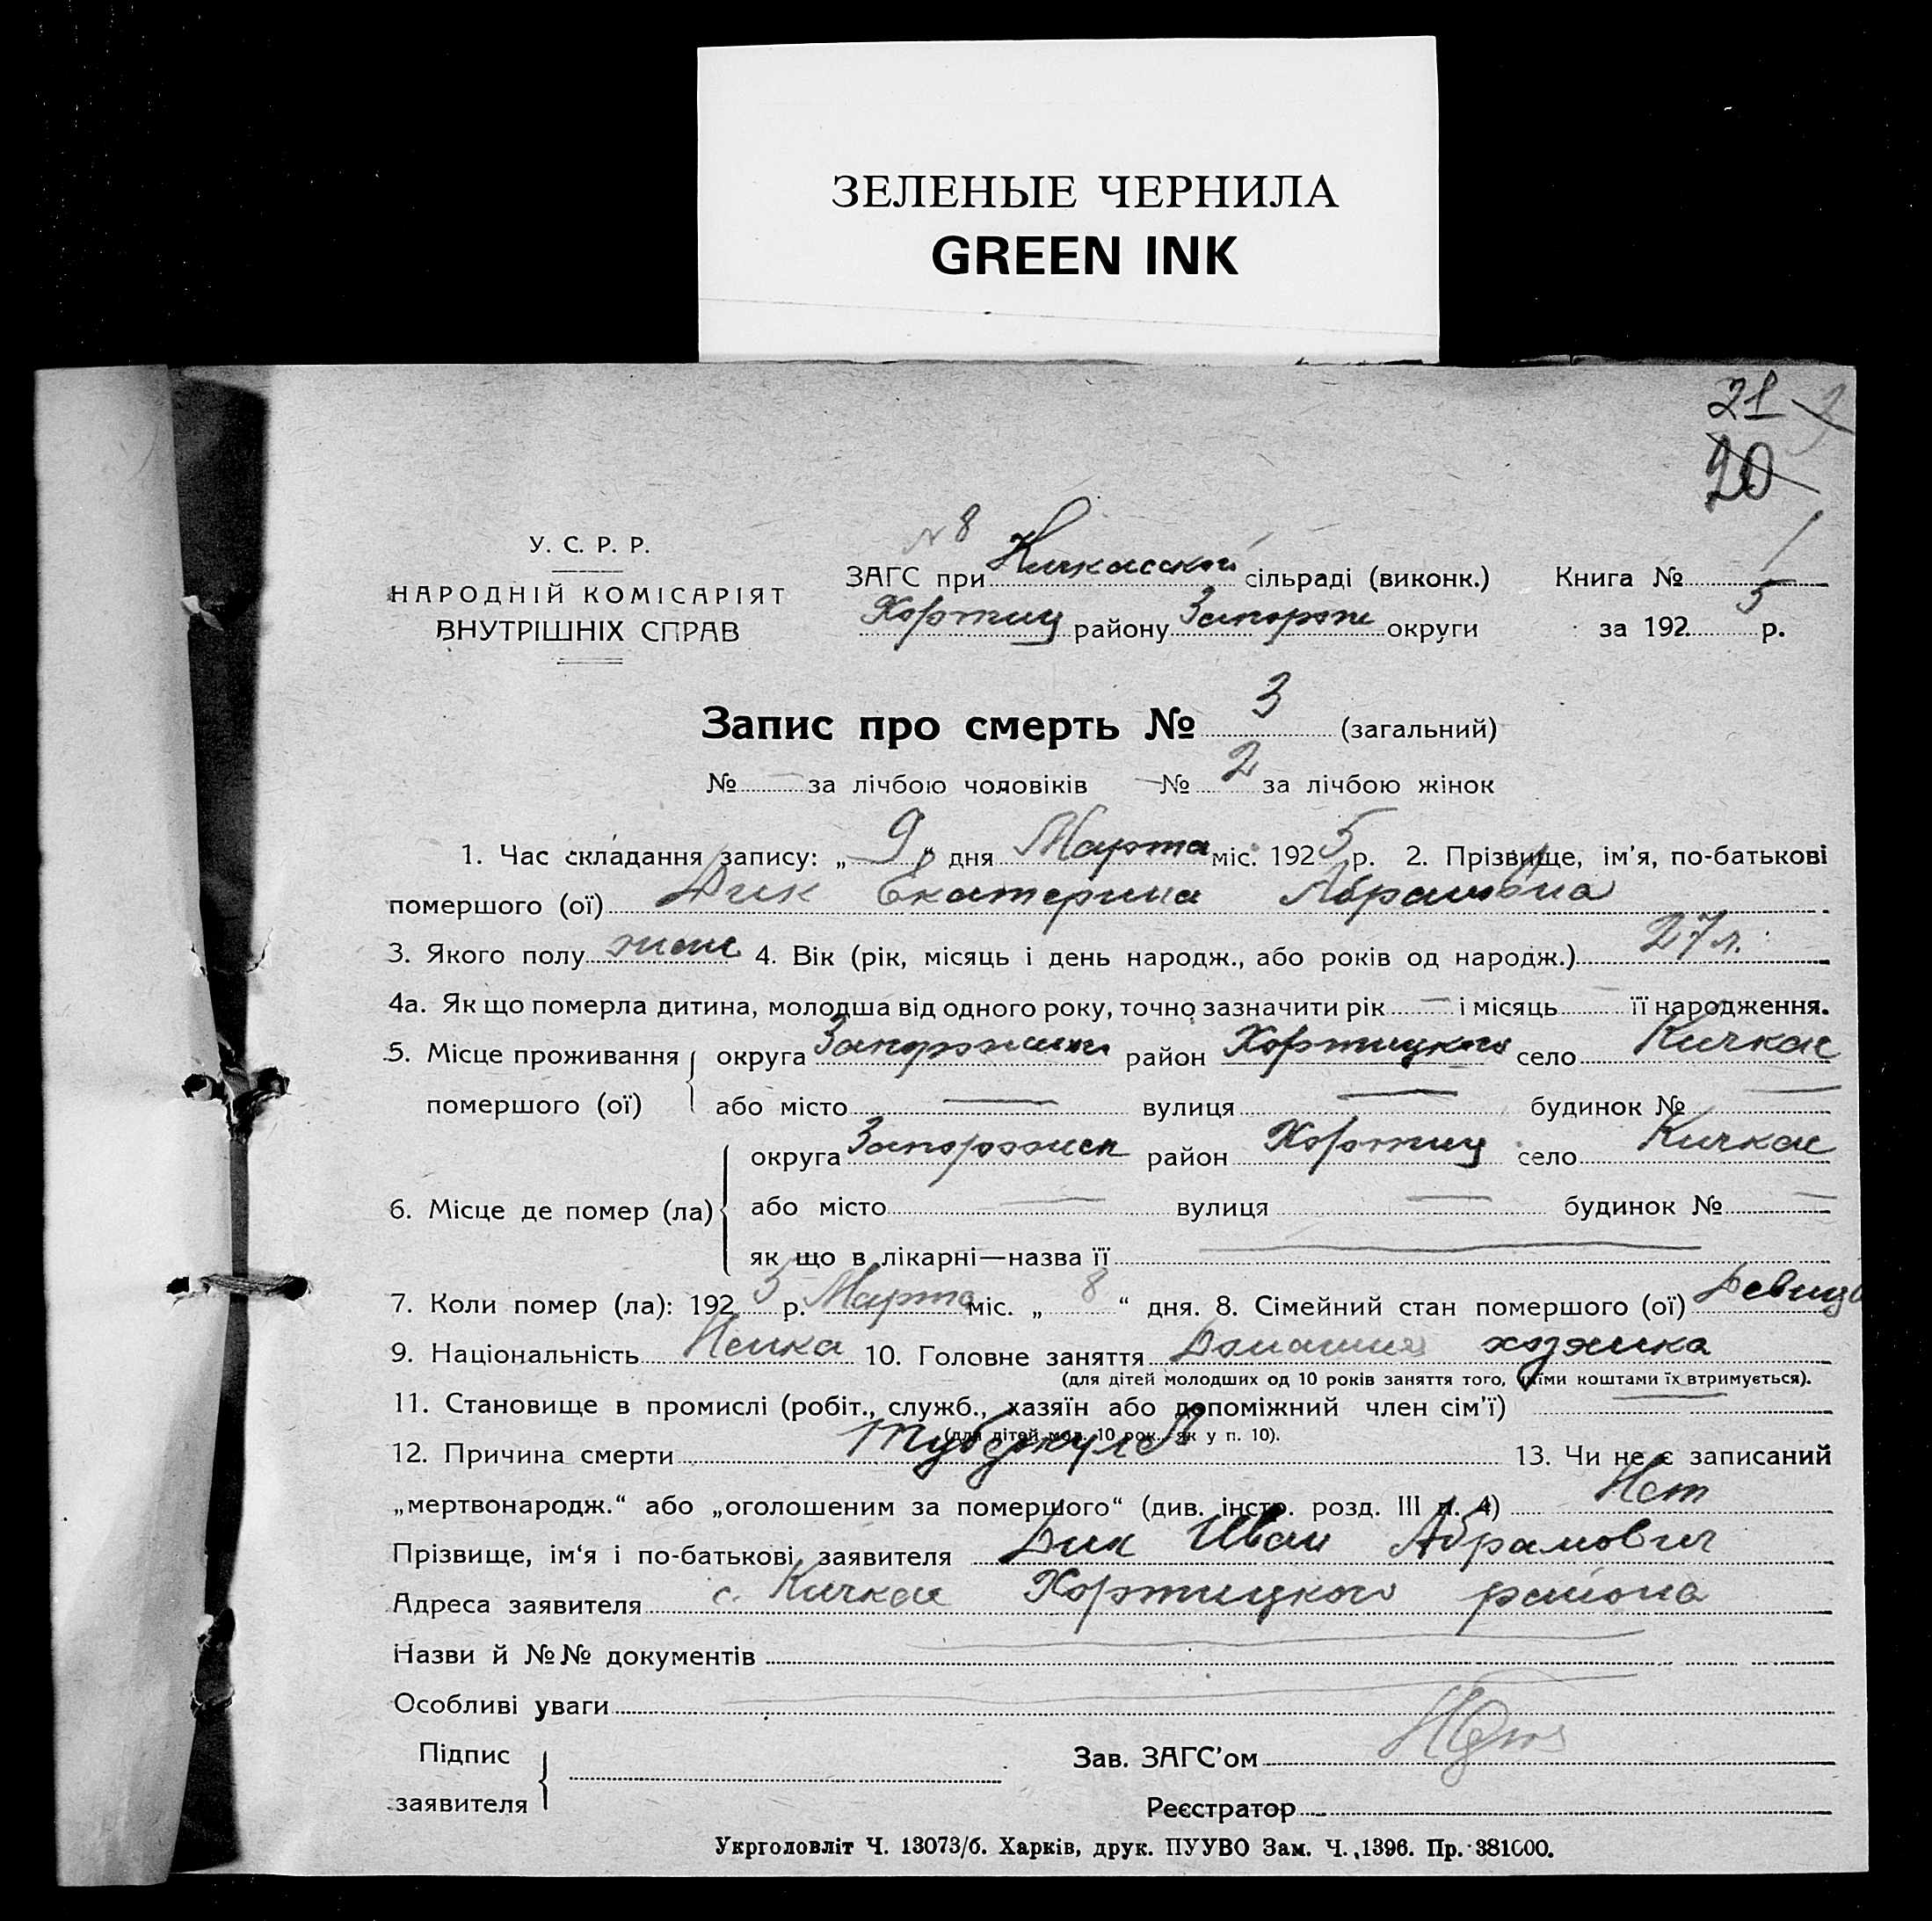 ЗЕЛЕНЫЕ ЧЕРНИЛА
GREEN INK
21
20
№ 8
У. С. Р. Р.
НАРОДНІЙ КОМІСАРІЯТ
ВНУТРІШНІХ СПРАВ
ЗАГС при Кичкасской сільраді (виконк.) Книга № 1
Хортиц району Запорож округи за 1925 р.
Запис про смерть № 3 (загальний)
№ — за лічбою чоловіків — № 2 за лічбою жінок
1. Час складання запису: „ 9 “ дня Марта міс. 1925 р. 2. Прізвище, ім'я, по-батькові
помершого (ої) Дик Екатерина Абрамовна
3. Якого полу жен 4. Вік (рік, місяць і день народж., або років од народж.) 27 л.
4а. Як що померла дитина, молодша від одного року, точно зазначити рік — і місяць — її народження.
5. Місце проживання округа район Хортицкого село Кичкас
помершого (ої) або місто — вулиця — будинок № —
округа Запорожск район Хортиц село Кичкас
6. Місце де помер (ла) або місто — вулиця — будинок № —
як що в лікарні—назва її —
7. Коли помер (ла): 1925 р. Марта міс. „ 8 “ дня. 8. Сімейний стан помершого (ої) Девица
9. Національність Немка 10. Головне заняття Домашняя хозяйка
(для дітей молодших од 10 років заняття того, чиїми коштами їх втримується).
11. Становище в промислі (робіт., служб., хазяїн або допоміжний член сім'ї) —
(для дітей мол. 10 рок. як у п. 10).
12. Причина смерти Туберкулез 13. Чи не є записаний
„мертвонародж.“ або „оголошеним за помершого“ (див. інстр. розд. III п. 4) Нет
Прізвище, ім'я і по-батькові заявителя Дик Иван Абрамович
Адреса заявителя с. Кичкас Хортицкого района
Назви й №№ документів —
Особливі уваги —
Підпис
заявителя
Зав. ЗАГС'ом
Реєстратор
Укрголовліт Ч. 13073/б. Харків, друк. ПУУВО Зам. Ч. 1396. Пр. 381000.